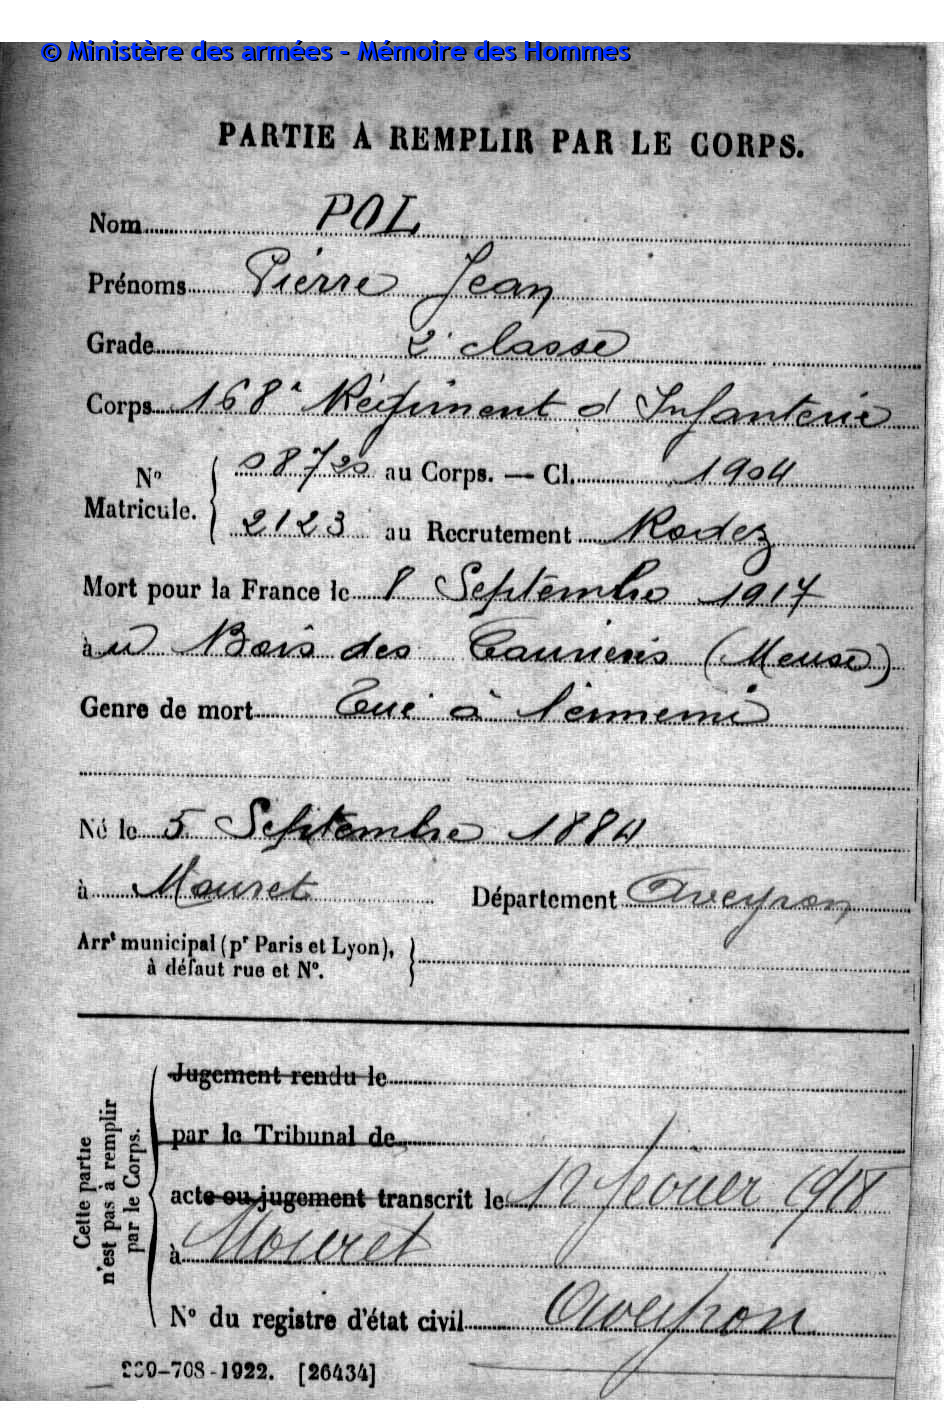 © Ministère des armées - Mémoire des Hommes
PARTIE A REMPLIR PAR LE CORPS.
Nom POL
Prénoms Pierre Jean
Grade 2e classe
Corps 168e Régiment d'Infanterie
No Matricule. { 08720 au Corps. — Cl. 1904
2123 au Recrutement Rodez
Mort pour la France le 8 Septembre 1917
à u Bois des (Meuse)
Genre de mort Tué à l'ennemi
Né le 5 Septembre 1884
à Mouret Département Aveyron
Arrt municipal (pr Paris et Lyon),
à défaut rue et No.
Cette partie n'est pas à remplir par le Corps.
Jugement rendu le
par le Tribunal de
acte ou jugement transcrit le 12 février 1918
à Mouret
No du registre d'état civil Aveyron
-708-1922. [26434]